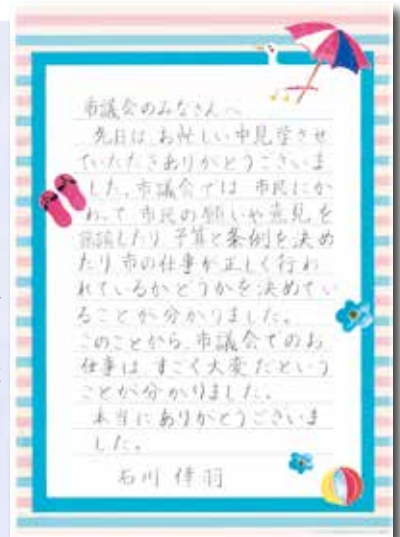 市議会のみなさんへ
先日は、お忙しい中見学させ
ていただきありがとうございま
した。市議会では 市民にか
わって 市民の願いや意見を
したり 予算と条例を決め
たり 市の仕事が正しく行わ
れているかどうかを決めてい
ることが分かりました。
このことから、市議会でのお
仕事は、すごく大変だという
ことが分かりました。
本当にありがとうございま
した。
石川 侑羽